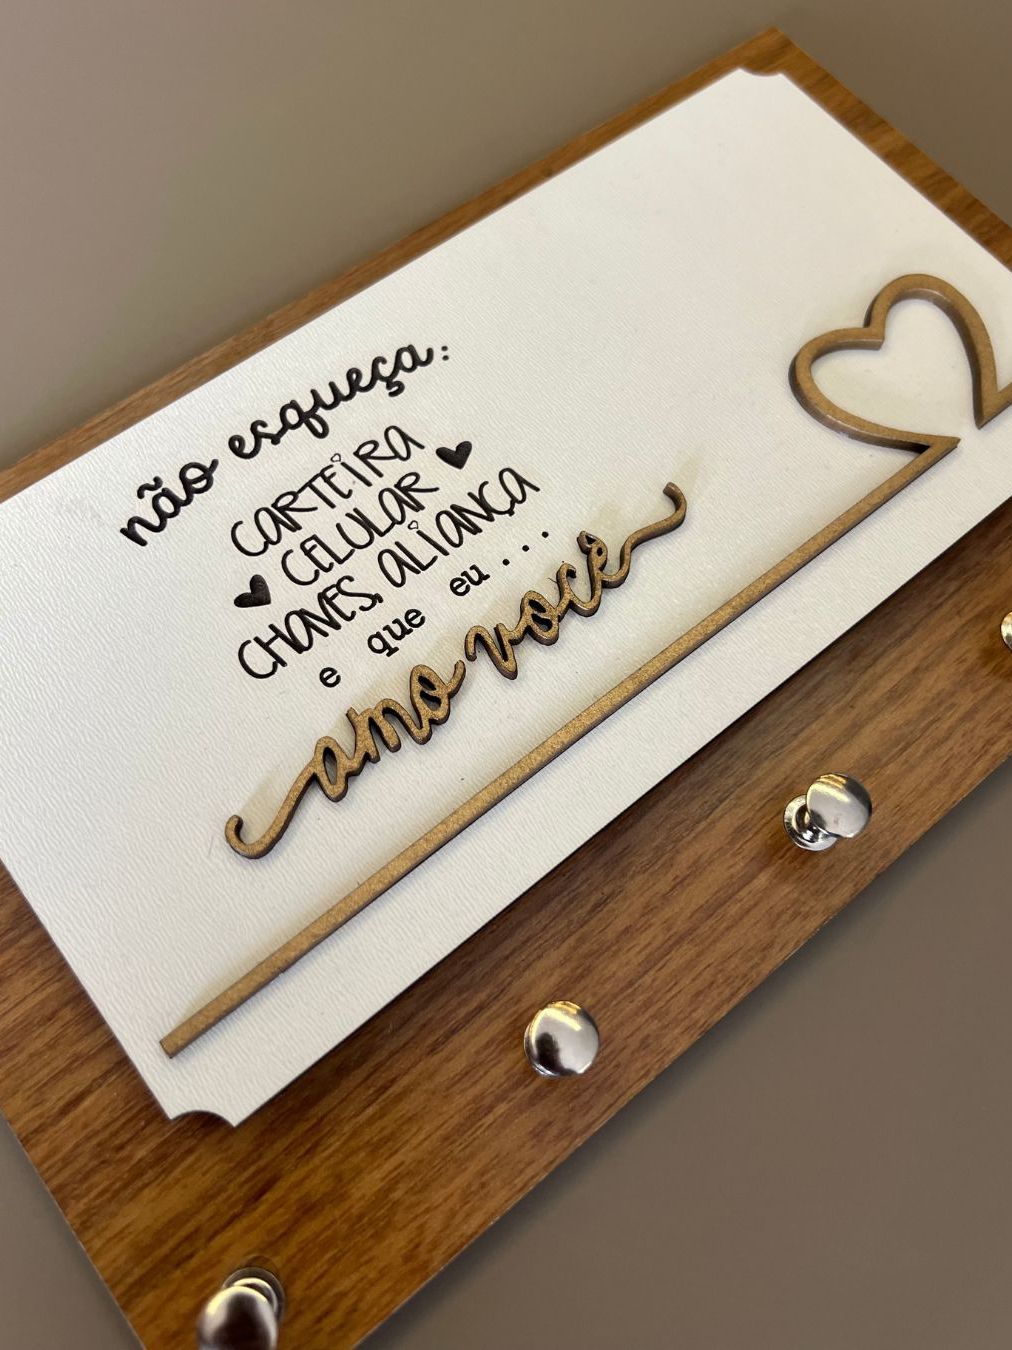 não esqueça:
CARTEIRA
CELULAR
CHAVES, ALIANÇA
e que eu...
amo você